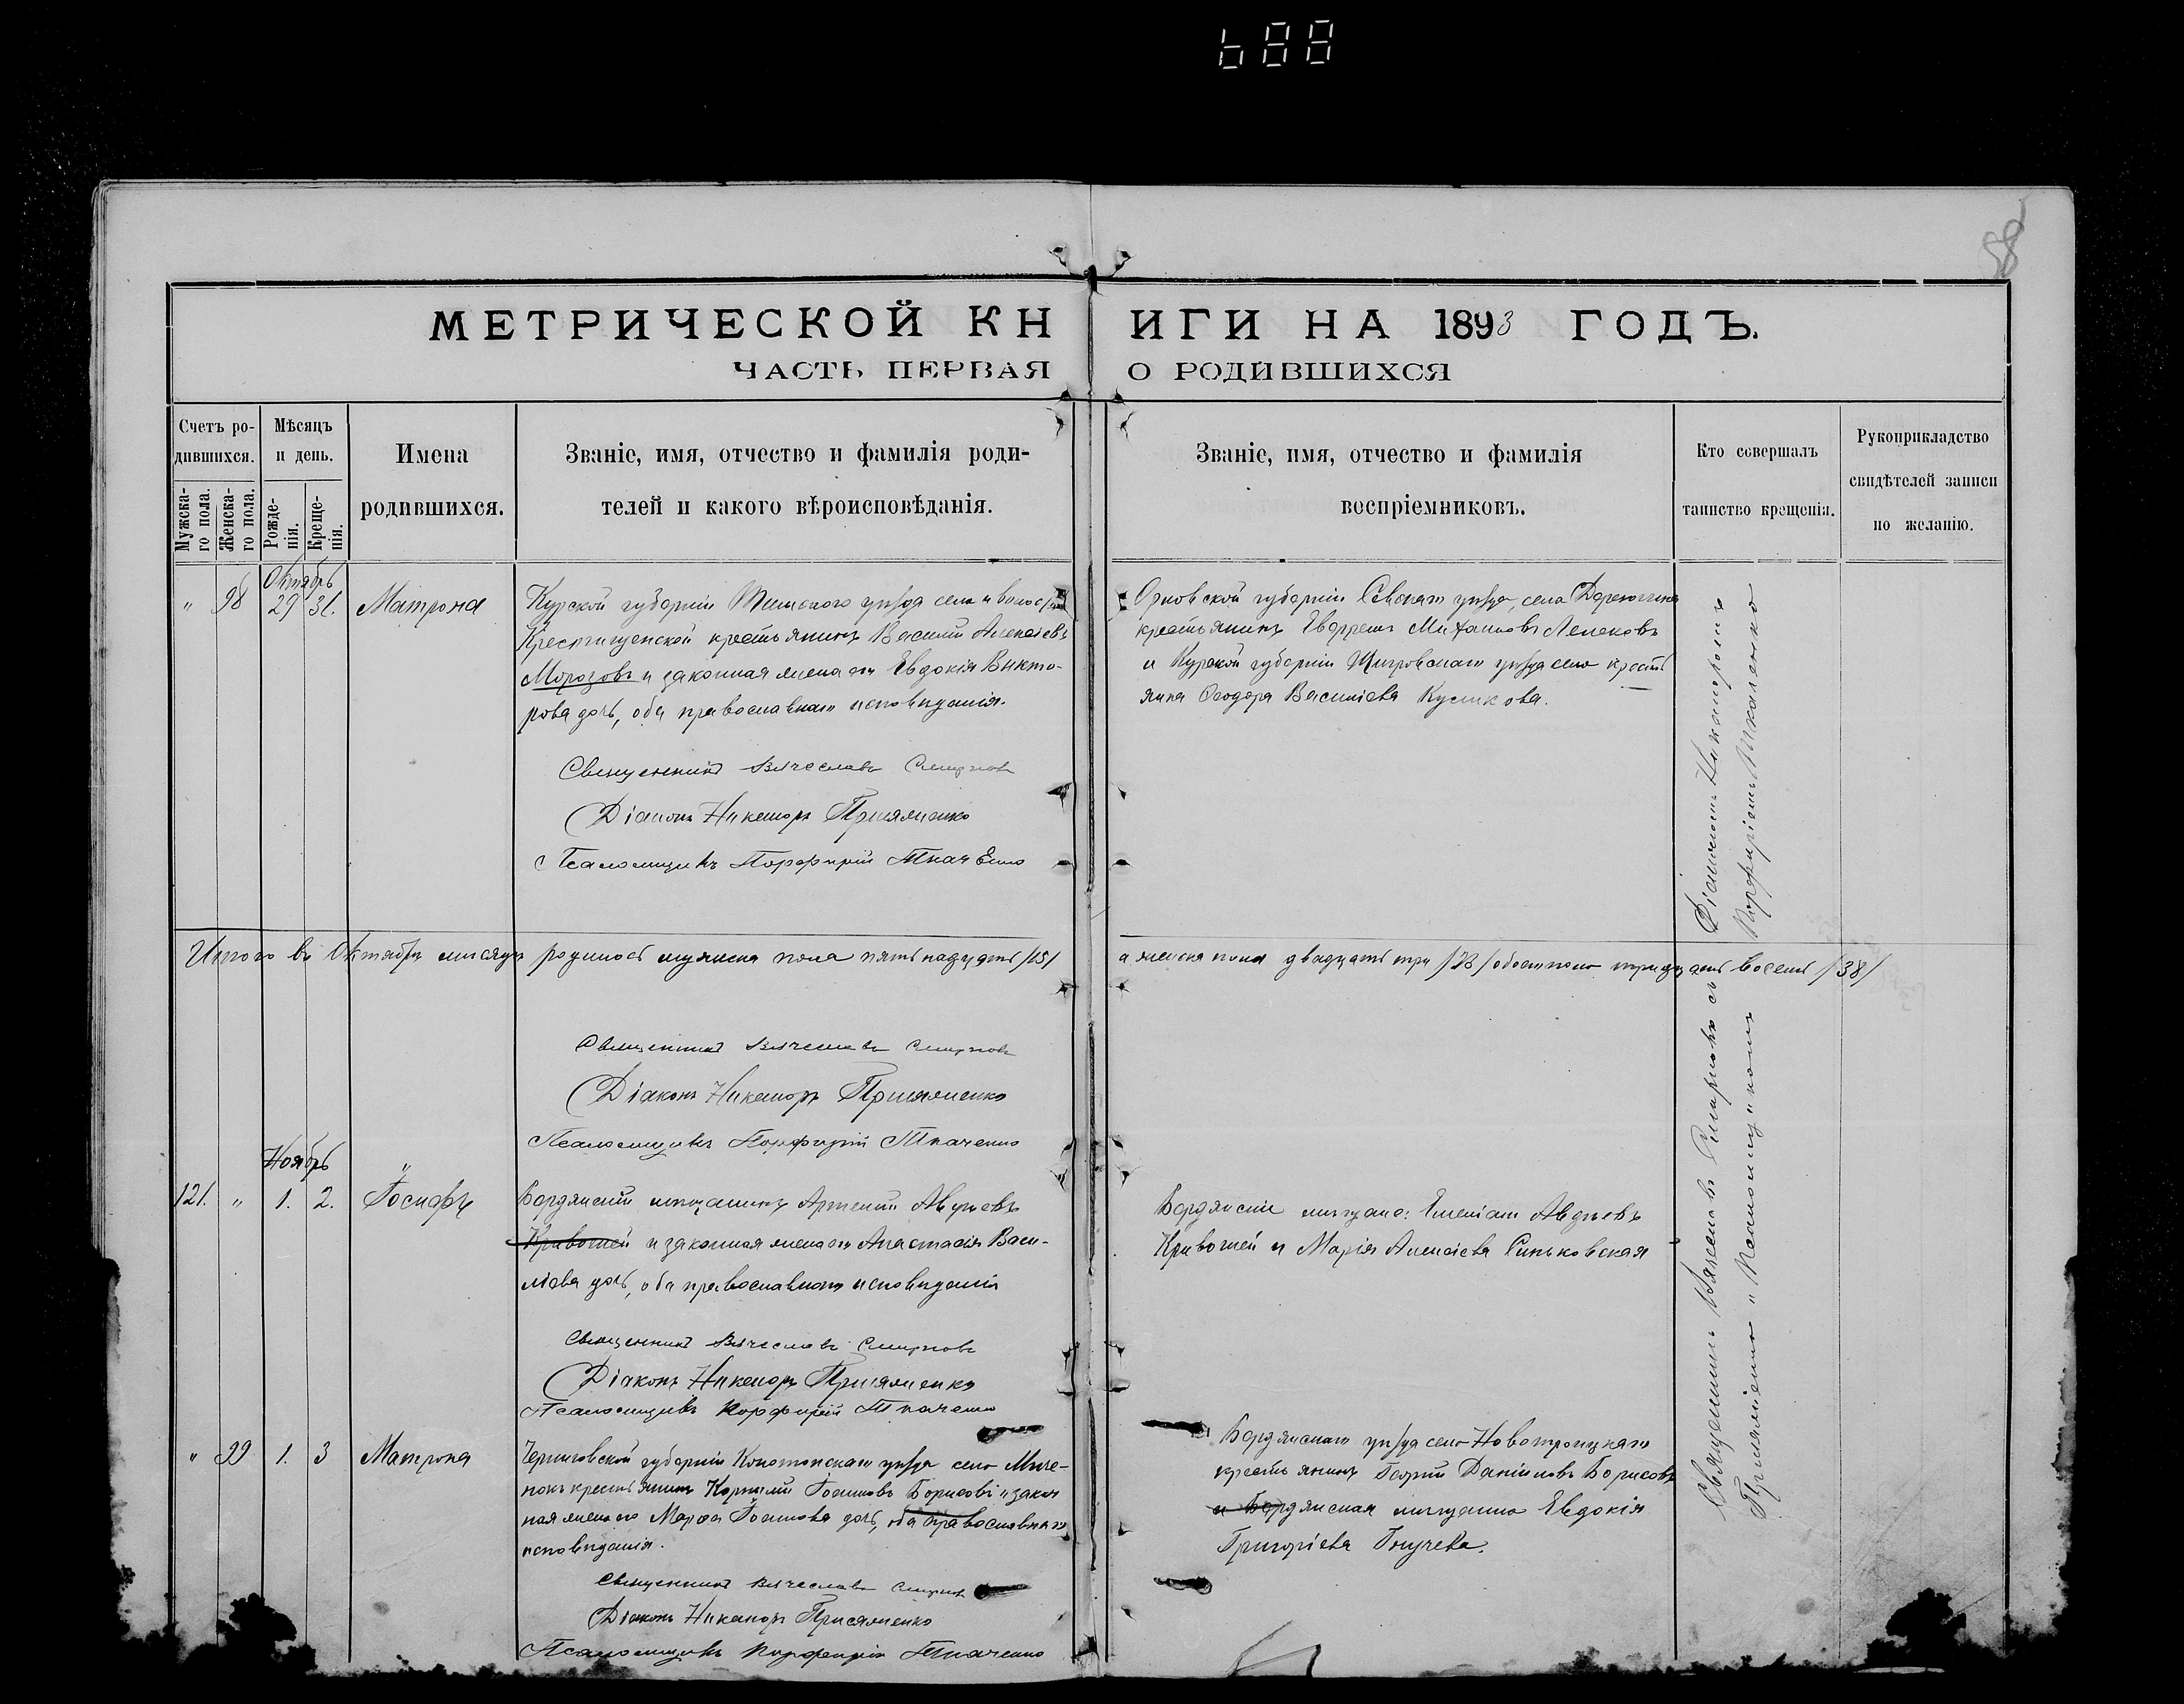 688
58
МЕТРИЧЕСКОЙ КНИГИ НА 1893 ГОДЪ.
ЧАСТЬ ПЕРВАЯ О РОДИВШИХСЯ
Счетъ родившихся.
Мужскаго пола.
Женскаго пола.
Мѣсяцъ и день.
Рожденія.
Крещенія.
Имена
родившихся.
Званіе, имя, отчество и фамилія роди-
телей и какого вѣроисповѣданія.
Званіе, имя, отчество и фамилія
воспріемниковъ.
Кто совершалъ
таинство крещенія.
Рукоприкладство
свидѣтелей записи
по желанію.
Октябрь
" 98 29 31. Матрона
Курской губерніи уѣзда села и волости
крестьянинъ Василій Алексѣевъ
Морозовъ и законная жена его Евдокія Викто-
рова дочь, оба православнаго исповѣданія.
Священникъ Вячеславъ Смирновъ
Діаконъ Никаноръ Присяженко
Псаломщикъ Порфирій Ткаченко
Орловской губерніи Сѣвскаго уѣзда, села
крестьянинъ Михаиловъ
и Курской губерніи Щигровскаго уѣзда село кресть
янка Ѳеодора Василіева Куликова.
Итого въ Октябрѣ мѣсяцѣ родилось мужска пола пятнадцать /15/ а женска пола двадцать три /23/ обоего пола тридцать восемь /38/
Священникъ Вячеславъ Смирновъ
Діаконъ Никаноръ Присяженко
Псаломщикъ Порфирій Ткаченко
Ноябрь
121. " 1. 2. Іосифъ
Бердянскій мѣщанинъ Артемій Авдѣевъ
Кривошей и законная жена его Анастасія Васи-
ліева дочь, оба православнаго исповѣданія
Священникъ Вячеславъ Смирновъ
Діаконъ Никаноръ Присяженко
Псаломщикъ Порфирій Ткаченко
Бердянскіе мѣщане: Авдѣевъ
Кривошей и Марія Алексіева Синьковская
" 99 1. 3 Матрона
Черниговской губерніи Конотопскаго уѣзда село
крестьянинъ Корнилій Іоанновъ Борисовъ и закон
ная жена его Марѳа Іоаннова дочь, оба православнаго
исповѣданія.
Священникъ Вячеславъ Смирновъ
Діаконъ Никаноръ Присяженко
Псаломщикъ Порфирій Ткаченко
Бердянскаго уѣзда село Новотроицкаго
крестьянинъ Георгій Даніиловъ Борисовъ
и Бердянская мѣщанка Евдокія
Григоріева
Священникъ Вячеславъ Смирновъ съ Діакономъ Никаноромъ
Присяженко и Псаломщикомъ Порфиріемъ Ткаченко